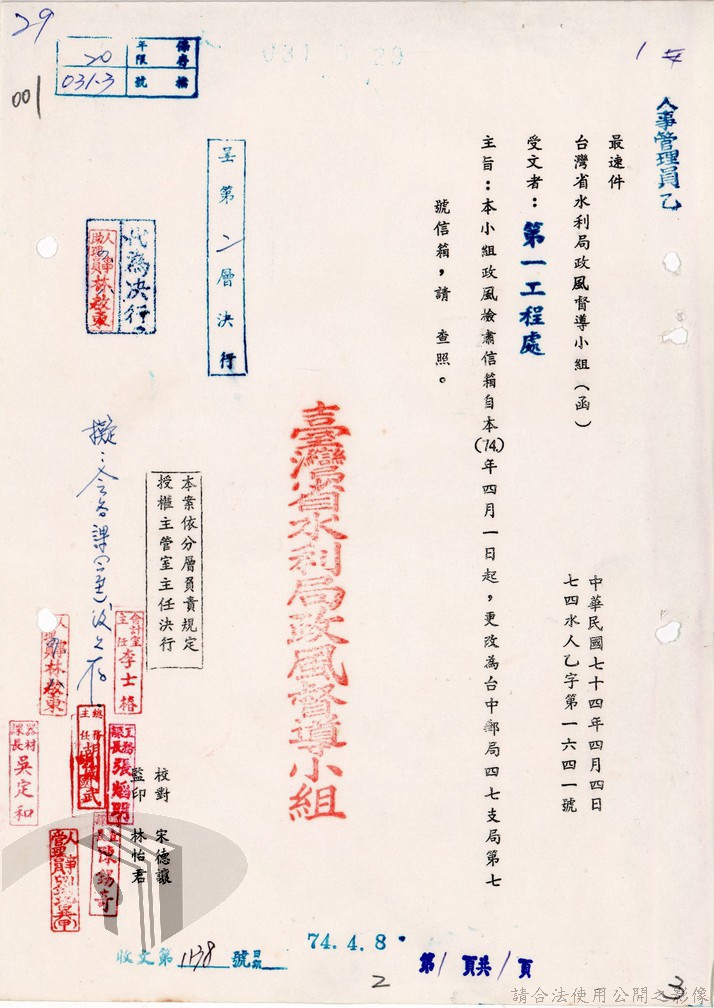 29
001
保存年限 20
檔號 031-3
人事管理員乙
最速件
台灣省水利局政風督導小組（函）
中華民國七十四年四月四日
七四水人乙字第一六四一號
受文者：第一工程處
主旨：本小組政風檢肅信箱自本(74.)年四月一日起，更改為台中郵局四七支局第七
號信箱，請　查照。
臺灣省水利局政風督導小組
呈第二層決行
本案依分層負責規定
授權主管室主任決行
代為決行
人事助理員林啟東
會計室主任李士椿
人事助理員林啟東
器材課長吳定和
校對　宋德讓
監印　林怡君
74.4.8
收文第1138號
第1頁共1頁
2
3
請合法使用公開之影像